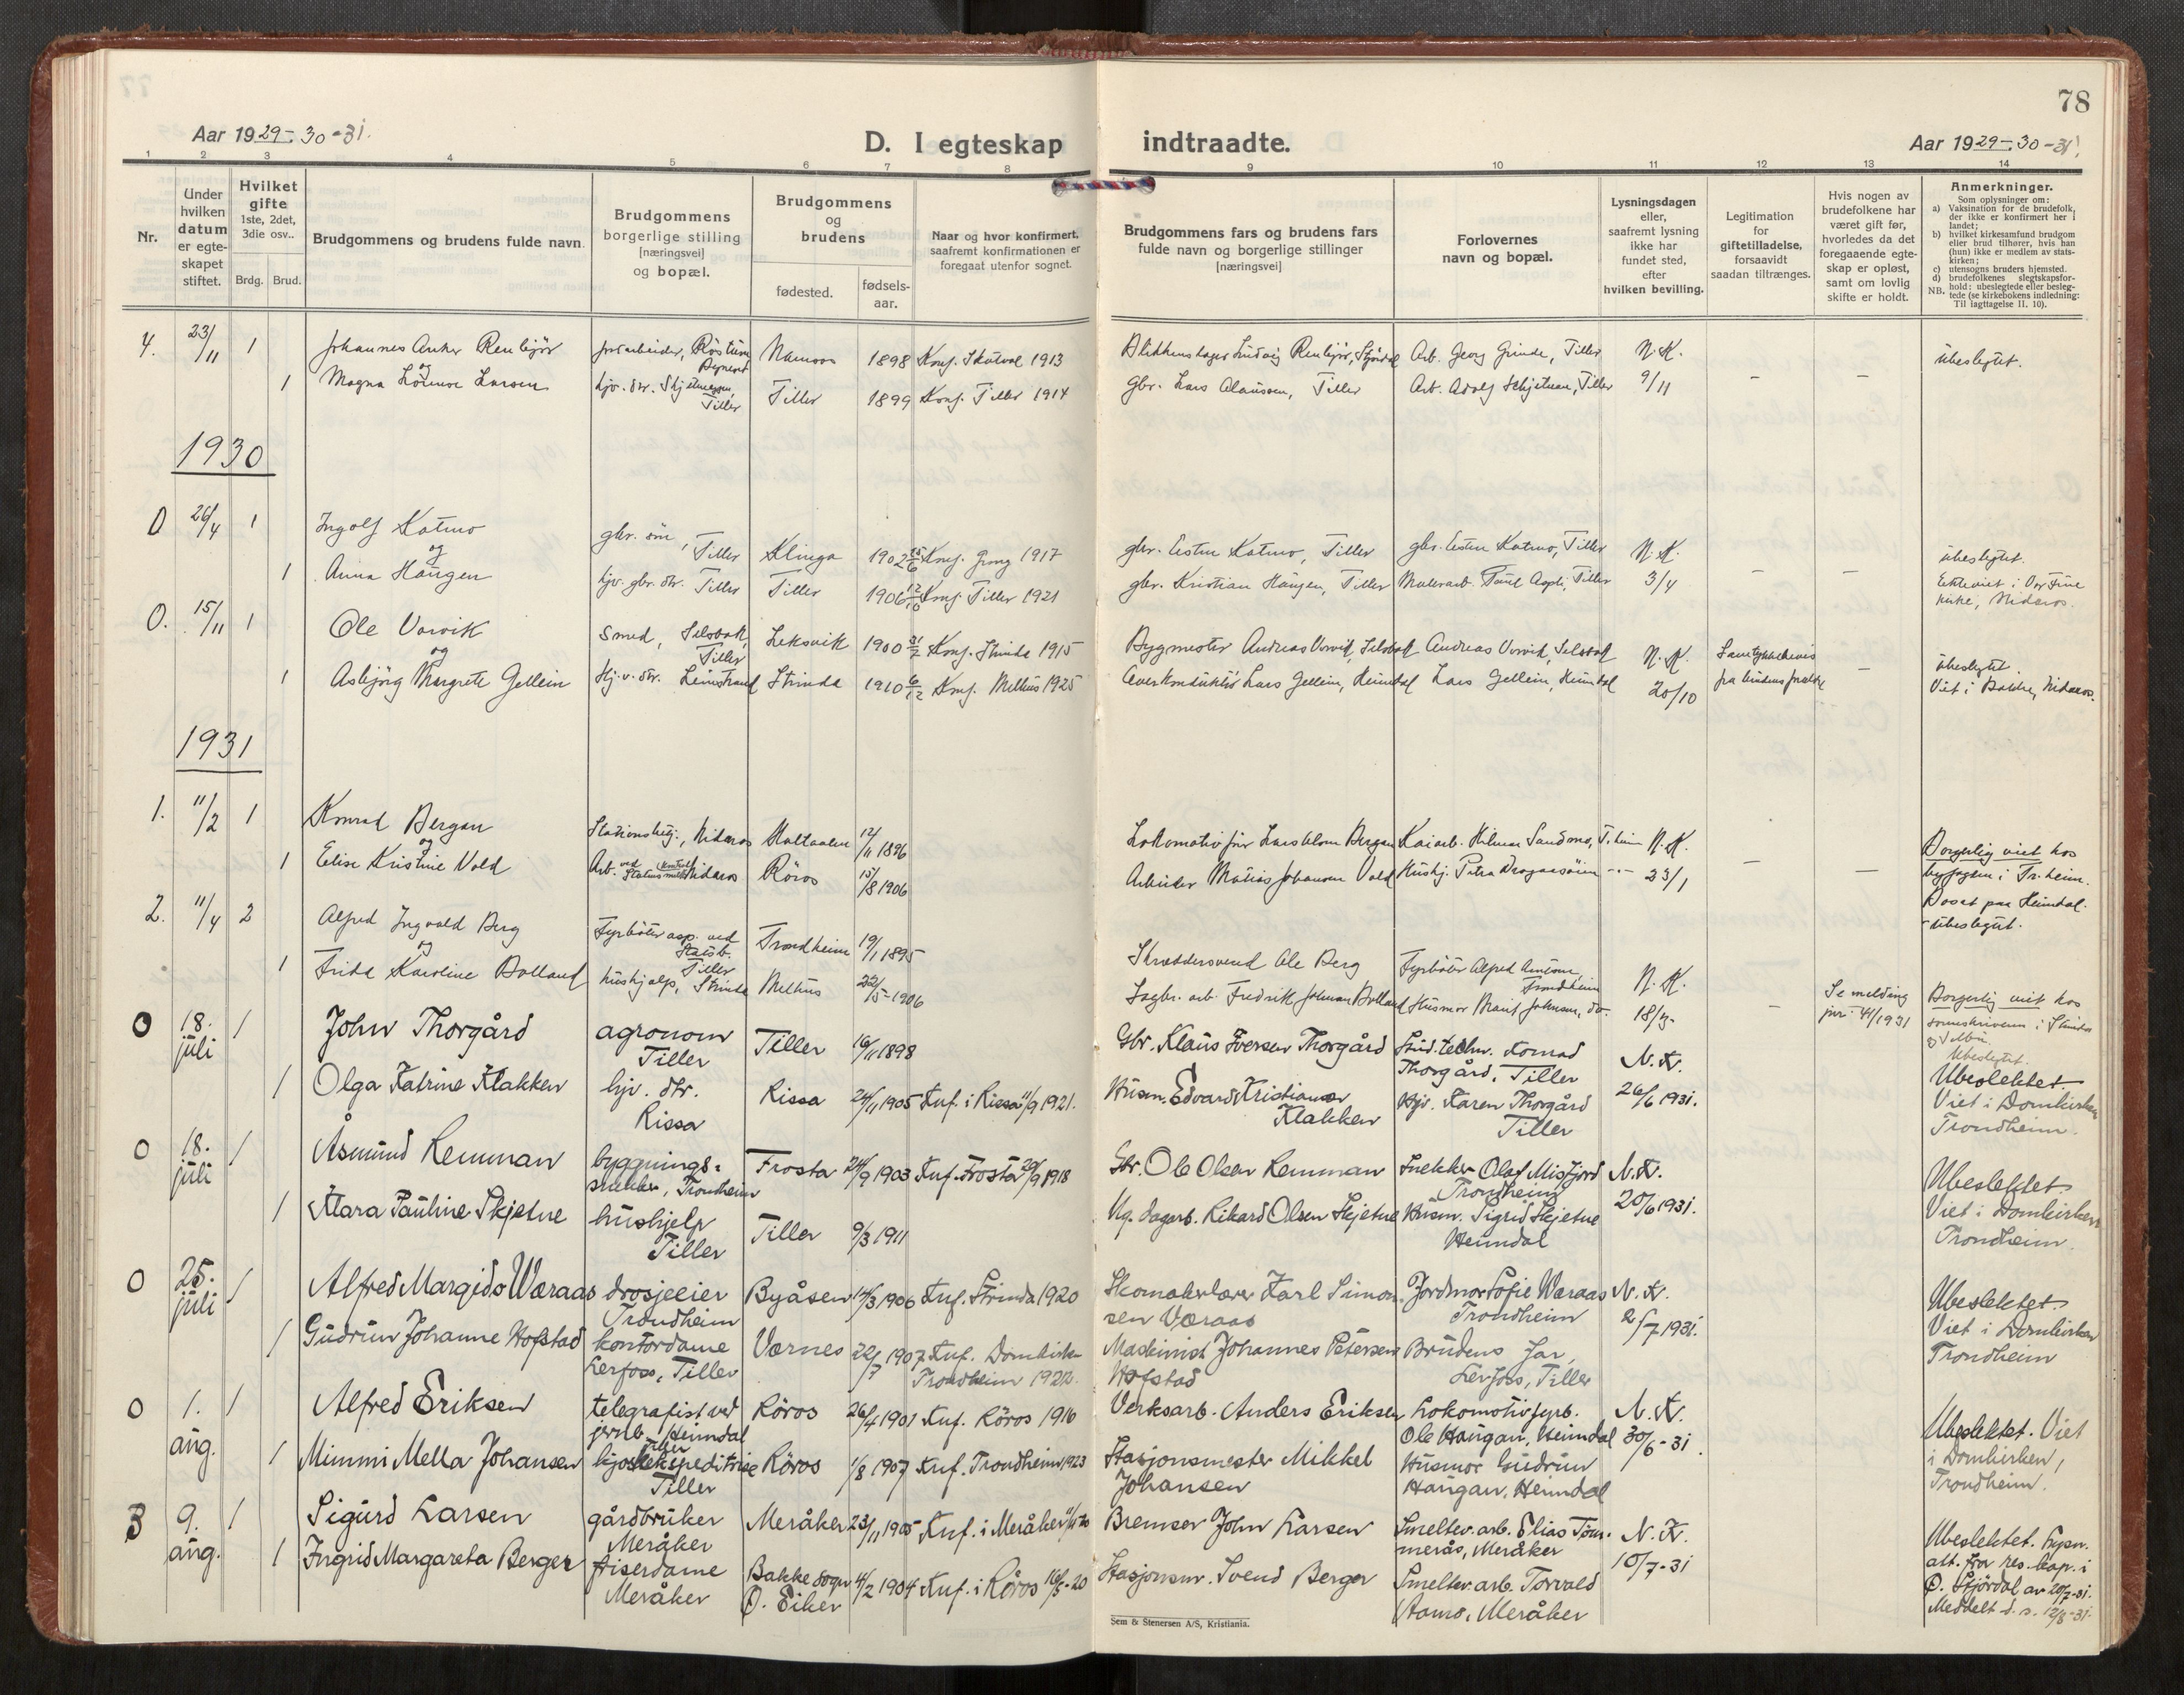 78
Aar 1929-30-31.
D. I egteskap indtraadte.
Aar 1929-30-31.
1 2 3 4 5 6 7 8 9 10 11 12 13 14
Nr.
Under hvilken datum er egte-skapet stiftet.
Hvilket gifte 1ste, 2det, 3die osv..
Brdg. Brud.
Brudgommens og brudens fulde navn.
Brudgommens borgerlige stilling [næringsvei] og bopæl.
Brudgommens og brudens
fødested.
fødsels-aar.
Naar og hvor konfirmert, saafremt konfirmationen er foregaat utenfor sognet.
Brudgommens fars og brudens fars fulde navn og borgerlige stillinger [næringsvei]
Forlovernes navn og bopæl.
Lysningsdagen eller, saafremt lysning ikke har fundet sted, efter hvilken bevilling.
Legitimation for giftetilladelse, forsaavidt saadan tiltrænges.
Hvis nogen av brudefolkene har været gift før, hvorledes da det foregaaende egte-skap er opløst, samt om lovlig skifte er holdt.
Anmerkninger.
Som oplysninger om:
a) Vaksination for de brudefolk, der ikke er konfirmert her i landet;
b) hvilket kirkesamfund brudgom eller brud tilhører, hvis han (hun) ikke er medlem av stats-kirken;
c) utensogns bruders hjemsted.
d) brudefolkenes slegtskapsfor-hold: ubeslegtede eller besleg-tede (se kirkebokens indledning: Til iagttagelse II. 10).
NB.
4. 23/11 1 Johannes Anker Renbjör Namsos 1898 Konf. Skatval 1913 Arb. Georg Grinde, Tiller N.K. ubeslegtet.
og
1 Magna Larsen Tiller Tiller 1899 Konf. Tiller 1914 gbr. Lars Olaussen, Tiller Arb. Adolf Schjetnan, Tiller 9/11 - -
1930
0 26/4 1 Ingolf Katmo gbr. søn, Tiller Klinga 1902 Konf. Grong 1917 gbr. Esten Katmo, Tiller gbr. Esten Katmo, Tiller N.K. ubeslegtet.
og
1 Anna Haugen hjv. gbr. dtr. Tiller Tiller 1906 Konf. Tiller 1921 gbr. Kristian Haugen, Tiller Tiller 3/4 - - Ekteviet i Vor Frue kirke, Nidaros.
0. 15/11 1 Ole Vorvik Smed, Selsbak, Tiller Leksvik 1900 Konf. Strinda 1915 Bygmester Andreas Vorvik, Selsbak Andreas Vorvik, Selsbak N.K. ubeslegtet.
og
1 Asbjörg Margrete Gellein Hjv. dtr. Leinstrand Strinda 1910 Konf. Melhus 1925 Lars Gellein, Heimdal Lars Gellein, Heimdal 20/10 - Viet i Bakke, Nidaros.
1931
1. 11/2 1 Konrad Bergan Nidaros Haltdalen 12/11 1896 N.K. Borgerlig viet hos byfogden i Tr.heim.
og
1 Elise Kristine Vold Nidaros Röros 15/8 1906 Arbeider Johansen Vold 23/1 - - Bosat paa Heimdal. - ubeslegtet.
2. 11/4 2 Alfred Ingvald Berg Fyrbøter asp. ved Statsb. Tiller Trondheim 19/1 1895 Skræddersvend Ole Berg Fyrbøter Alfred Trondheim N.K.
og
1 Frida Karoline Bolland hushjælp, Strinda Melhus 22/5-1906 Fredrik Johnsen Bolland 18/3- - Se melding jnr. 41/1931 Borgerlig viet hos sorenskriveren i Strinda og Selbu. Ubeslegtet.
0 18. juli 1 John Thorgård agronom Tiller Tiller 16/11 1898 Gbr. Klaus Iversen Thorgård Stud. techn. Konrad Thorgård, Tiller N.K. Ubeslektet.
1 Olga Katrine Klakken hjv. dtr. Rissa Rissa 24/11 1905 Knf. i Rissa 11/9 1921. Husm. Edvard Kristiansen Klakken Hjv. Karen Thorgård Tiller 26/6 1931. Viet i Domkirken Trondheim.
0 18. juli 1 Åsmund Lemman bygnings-snekker, Trondheim Frosta 24/9 1903 Knf. Frosta 29/9 1918 Gbr. Ole Olsen Lemman Snekker Olaf Misfjord Trondheim N.K. Ubeslektet.
1 Klara Pauline Skjetne hushjelp Tiller Tiller 9/3 1911 Rikard Olsen Skjetne Husm. Sigrid Skjetne Heimdal 20/6 1931. Viet i Domkirken Trondheim.
0 25. juli 1 Alfred Margido Væraas drosjeeier Trondheim Byåsen 14/3 1906 Knf. Strinda 1920 Skomakerlærer Karl Simonsen Væraas Jordmor Sofie Væraas Trondheim N.K. Ubeslektet.
1 Gudrun Johanne Hofstad kontordame Lerfoss, Tiller Værnes 22/7 1907 Knf. Domkirken Trondheim 1922. Maskinist Johannes Petersen Hofstad Brudens far, Lerfoss, Tiller 2/7 1931. Viet i Domkirken Trondheim
0 1. aug. 1 Alfred Eriksen telegrafist ved jernb. Heimdal Tiller Röros 26/4 1901 Knf. Röros 1916 Verksarb. Anders Eriksen Lokomotivfyrb. Ole Haugan, Heimdal N.K. Ubeslektet. Viet
1 Mimmi Mella Johansen kioskekspeditrise Tiller Röros 1/8 1907 Knf. Trondheim 1923 Stasjonsmester Mikkel Johansen Husmor Gudrun Haugan, Heimdal 30/6-31 i Domkirken, Trondheim.
3 9. aug. 1 Sigurd Larsen gårdbruker Meråker Meråker 23/11 1905 Knf. i Meråker Bremser John Larsen Smeltev. arb. Elias Tömmerås, Meråker N.K. Ubeslektet. Lysn.
1 Ingrid Margareta Berger friserdame Meråker Bakke sogn Ö. Eiker 4/2 1904 Knf. i Röros 16/5-20 Stasjonsm. Svend Berger Smeltev. arb. Torvald Aamo, Meråker 10/7-31 att. fra res. kap. i Ö. Stjördal av 20/7-31. Meddelt d. s. 12/8-31.
Sem & Stenersen A/S, Kristiania.